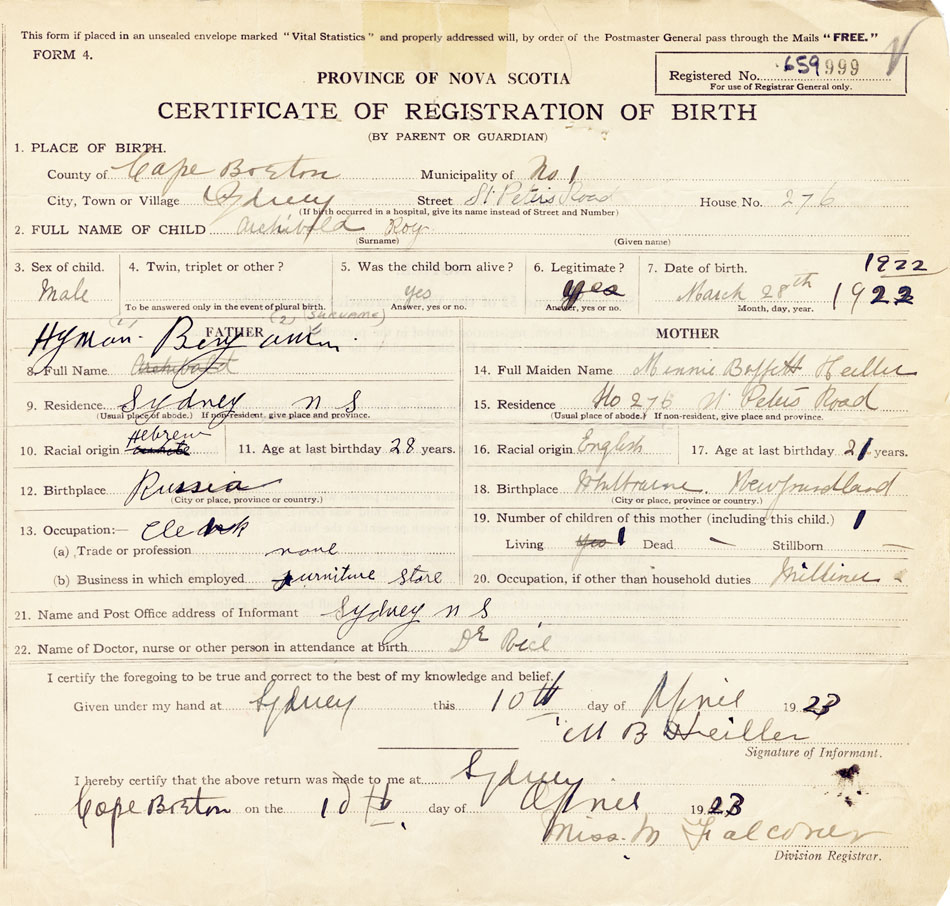 This form if placed in an unsealed envelope marked "Vital Statistics" and properly addressed will, by order of the Postmaster General pass through the Mails "FREE."
FORM 4.
PROVINCE OF NOVA SCOTIA
Registered No. 659999
For use of Registrar General only.
CERTIFICATE OF REGISTRATION OF BIRTH
(BY PARENT OR GUARDIAN)
1. PLACE OF BIRTH.
County of Cape Boston Municipality of No. 1
City, Town or Village Sydney Street St. Peters Road House No. 276
(If birth occurred in a hospital, give its name instead of Street and Number)
2. FULL NAME OF CHILD Archibald Roy
(Surname) (Given name)
3. Sex of child. 4. Twin, triplet or other? 5. Was the child born alive? 6. Legitimate? 7. Date of birth. 1922
Male yes yes March 28th 1922
To be answered only in the event of plural birth. Answer, yes or no. Answer, yes or no. Month, day, year.
(1) (2) (Surname)
FATHER MOTHER
Hyman Benjamin
8. Full Name Archibald 14. Full Maiden Name Minnie Heiller
9. Residence Sydney n S 15. Residence No 276 St Peters Road
(Usual place of abode.) If non-resident, give place and province. (Usual place of abode.) If non-resident, give place and province.
Hebrew
10. Racial origin 11. Age at last birthday 28 years. 16. Racial origin English 17. Age at last birthday 21 years.
12. Birthplace Russia 18. Birthplace Whitbourne. Newfoundland
(City or place, province or country.) (City or place, province or country.)
13. Occupation:— Clerk 19. Number of children of this mother (including this child.) 1
(a) Trade or profession none Living Yes 1 Dead — Stillborn —
(b) Business in which employed furniture store 20. Occupation, if other than household duties Milliner
21. Name and Post Office address of Informant Sydney n S
22. Name of Doctor, nurse or other person in attendance at birth Dr Rice
I certify the foregoing to be true and correct to the best of my knowledge and belief.
Given under my hand at Sydney this 10th day of April 1923
M B Heiller
Signature of Informant.
I hereby certify that the above return was made to me at Sydney
Cape Boston on the 10th day of April 1923
Miss. M Falconer
Division Registrar.